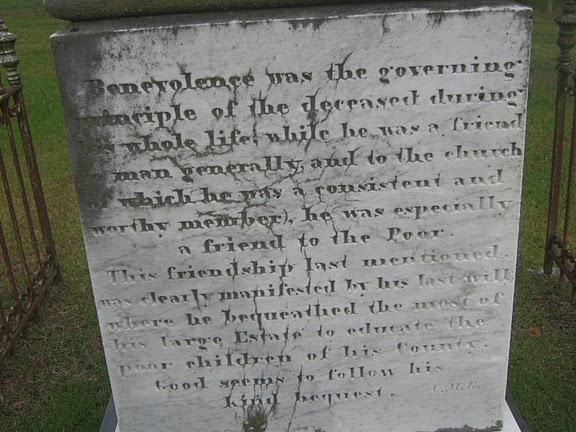 Benevolence was the governing
principle of the deceased during
his whole life; while he was a friend
man generally, and to the church
of which he was a consistent and
worthy member), he was especially
a friend to the Poor.
This friendship last mentioned,
was clearly manifested by his last will
where he bequeathed the most of
his large Estate to educate the
poor children of his County.
Good seems to follow his
kind bequest.